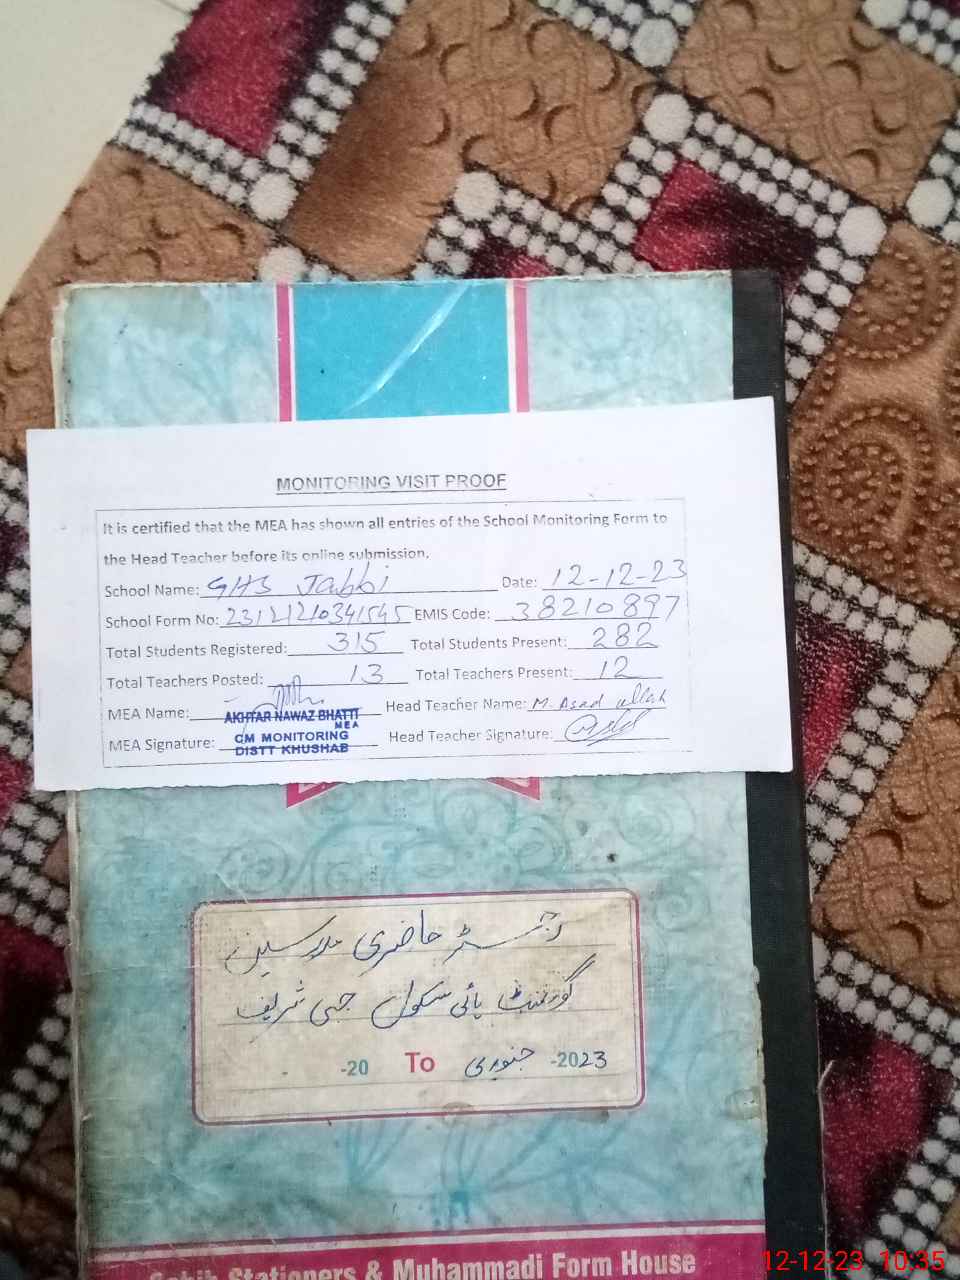 MONITORING VISIT PROOF
It is certified that the MEA has shown all entries of the School Monitoring Form to
the Head Teacher before its online submission.
School Name: GHS Jabbi Date: 12-12-23
School Form No: EMIS Code: 38210897
Total Students Registered: 315 Total Students Present: 282
Total Teachers Posted: 13 Total Teachers Present: 12
MEA Name: AKHTAR NAWAZ BHATTI Head Teacher Name: M. Asad ullah
MEA
MEA Signature: CM MONITORING Head Teacher Signature:
DISTT KHUSHAB
رجسٹر حاضری مدرسین
گورنمنٹ ہائی سکول جبی شریف
-20 To جنوری -2023
Stationers & Muhammadi Form House
12-12-23 10:35